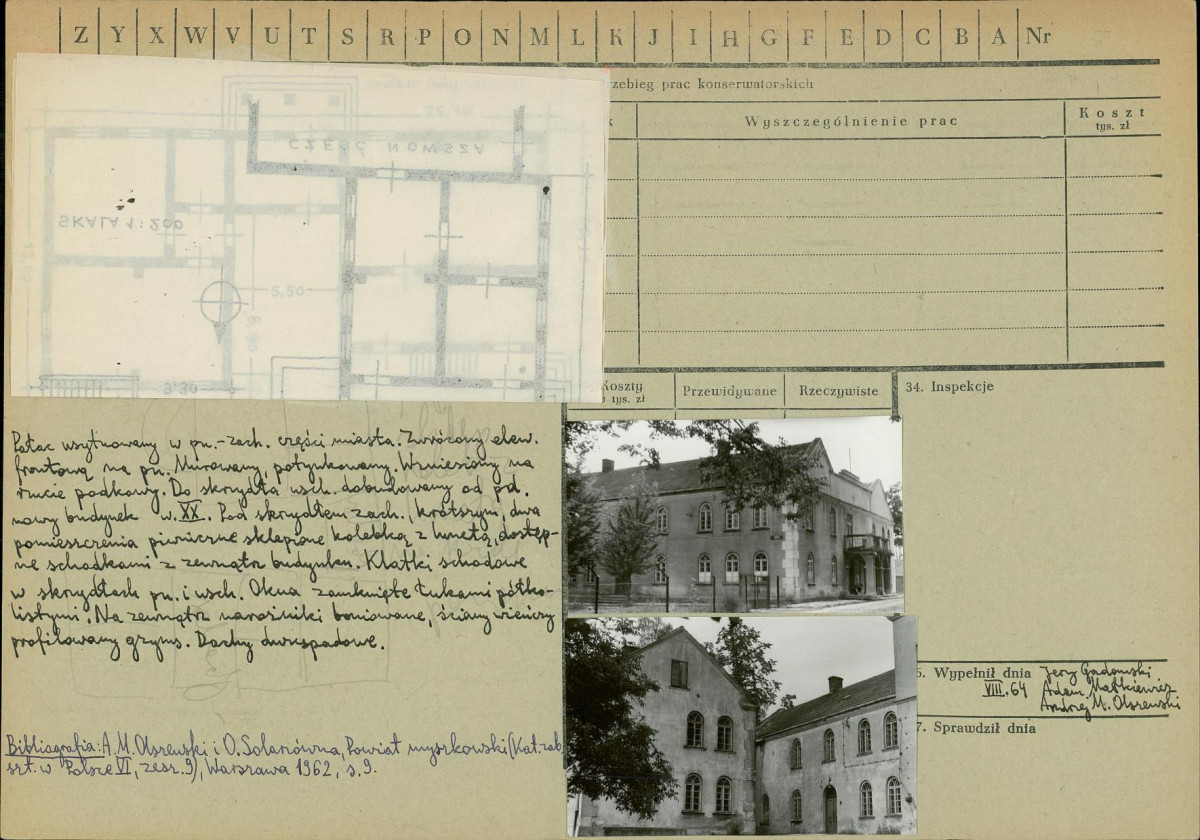 Z Y X W V U T S R P O N M L K J I H G F E D C B A Nr
rzebieg prac konserwatorskich
k Wyszczególnienie prac Koszt
tys. zł
CZĘŚĆ NOWSZA
SKALA 1:200
5,50
9,30
Koszty
tys. zł
Przewidywane Rzeczywiste
34. Inspekcje
Pałac usytuowany w pn.-zach. części miasta. Zwrócony elew.
frontową na pn. Murowany, potynkowany. Wzniesiony na
rzucie podkowy. Do skrzydła wsch. dobudowany od pd.
nowy budynek w. XX. Pod skrzydłem zach., krótszym, dwa
pomieszczenia piwniczne sklepione kolebką z lunetą, dostęp-
ne schodkami z zewnątrz budynku. Klatki schodowe
w skrzydłach pn. i wsch. Okna zamknięte łukami półko-
listymi. Na zewnątrz narożniki boniowane, ściany wieńczy
profilowany gzyms. Dachy dwuspadowe.
Bibliografia: A. M. Olszewski i O. Solarówna, Powiat myszkowski (Kat. zab.
szt. w Polsce VI, zesz. 9), Warszawa 1962, s. 9.
6. Wypełnił dnia
VIII. 64
Jerzy Gadomski
Adam Małkiewicz
Andrzej M. Olszewski
7. Sprawdził dnia